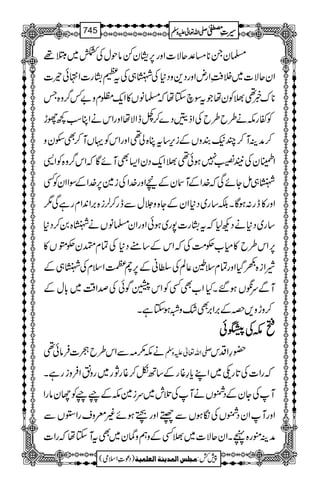 سیرتِ مصطفیٰ صلی اللہ تعالیٰ علیہ وسلم 745
مسلمان جن نامساعد حالات اور پریشان کن ماحول کی کشمکش میں مبتلا تھے
ان حالات میں خلافتِ ارض اور دین و دنیا کی شہنشاہی کی یہ عظیم بشارت انتہائی حیرت
ناک خبر تھی بھلا کون تھا جو یہ سوچ سکتا تھا کہ مسلمانوں کا ایک مظلوم و بے کس گروہ جس
کو کفارِ مکہ نے طرح طرح کی اذیتیں دے کر کچل ڈالا تھا اور اس نے اپنا سب کچھ چھوڑ
کر مدینہ آ کر چند نیک بندوں کے زیر سایہ پناہ لی تھی اور اس کو یہاں آ کر بھی سکون و
اطمینان کی نیند نصیب نہیں ہوئی تھی بھلا ایک دن ایسا بھی آئے گا کہ اس گروہ کو ایسی
شہنشاہی مل جائے گی کہ خدا کے آسمان کے نیچے اور خدا کی زمین پر خدا کے سوا ان کو کسی
اور کا ڈر نہ ہوگا۔ بلکہ ساری دنیا ان کے جاہ و جلال سے ڈر کر لرزہ براندام رہے گی مگر
ساری دنیا نے دیکھ لیا کہ یہ بشارت پوری ہوئی اور ان مسلمانوں نے شہنشاہ بن کر دنیا
پر اس طرح کامیاب حکومت کی کہ اس کے سامنے دنیا کی تمام متمدن حکومتوں کا
شیرازہ بکھر گیا اور تمام سلاطینِ عالم کی سلطانی کے پرچم عظمتِ اسلام کی شہنشاہی کے
آگے سرنگوں ہو گئے۔ کیا اب بھی کسی کو اس پیشین گوئی کی صداقت میں بال کے
کروڑویں حصہ کے برابر بھی شک و شبہ ہو سکتا ہے۔
فتح مکہ کی پیشگوئی
حضورِ اقدس صلی اللہ تعالیٰ علیہ وسلم نے مکہ مکرمہ سے اس طرح ہجرت فرمائی تھی
کہ رات کی تاریکی میں اپنے یارِ غار کے ساتھ نکل کر غارِ ثور میں رونق افروز رہے۔
آپ کی جان کے دشمنوں نے آپ کی تلاش میں سرزمینِ مکہ کے چپے چپے کو چھان مارا
اور آپ ان دشمنوں کی نگاہوں سے چھپتے اور بچتے ہوئے غیر معروف راستوں سے
مدینہ منورہ پہنچے۔ ان حالات میں بھلا کسی کے وہم و گمان میں بھی یہ آ سکتا تھا کہ رات
پیش کش: مجلس المدینۃ العلمیۃ (دعوتِ اسلامی)